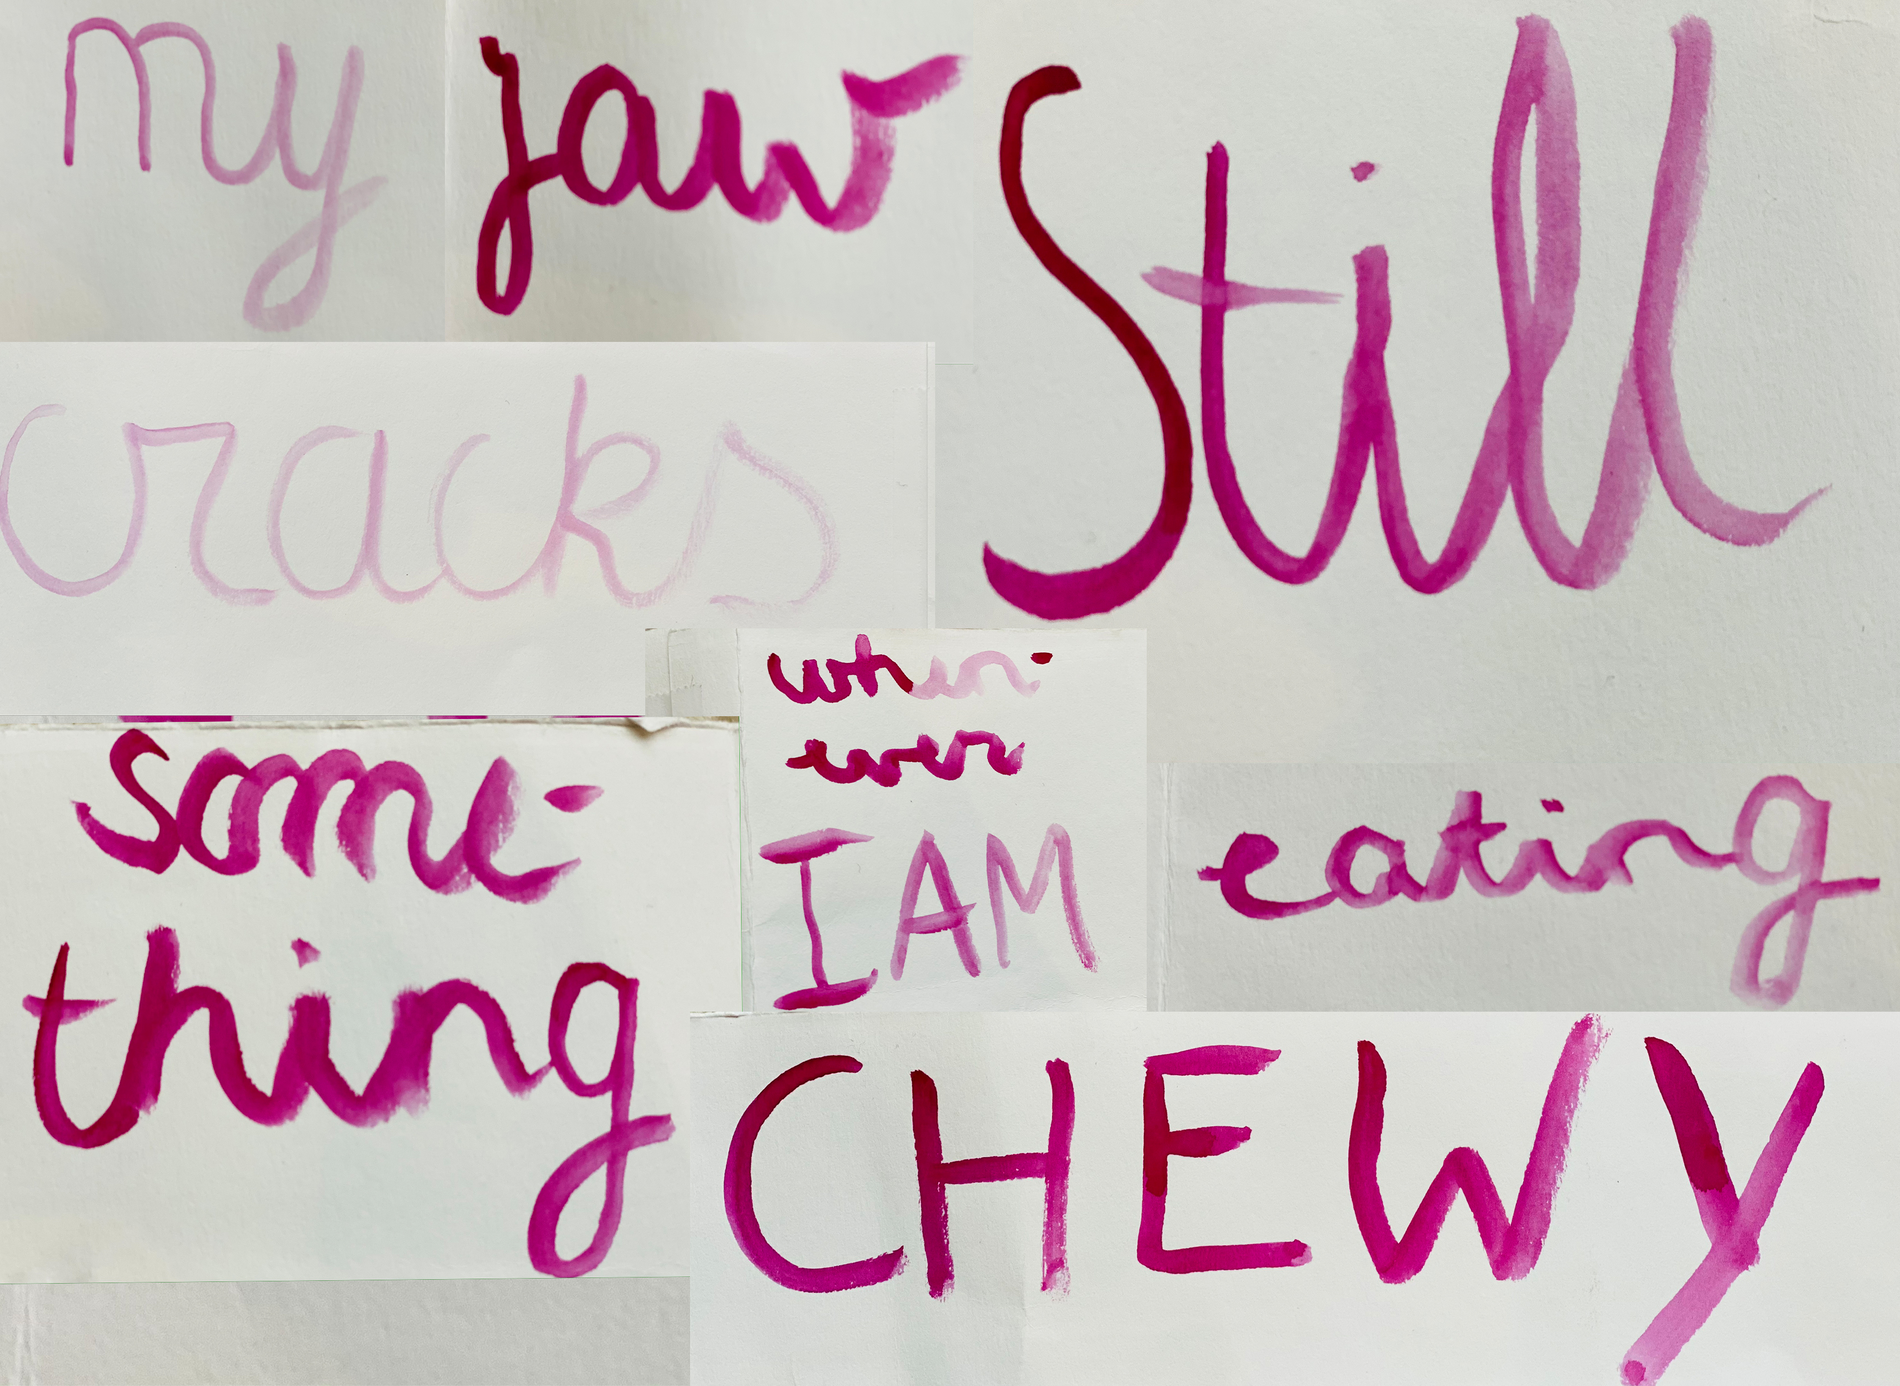 my jaw Still
cracks
when-
ever
I AM
eating
some-
thing
CHEWY